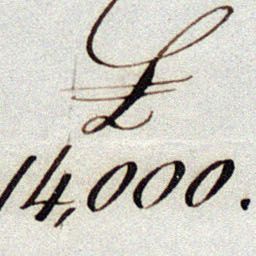 £
14,000.